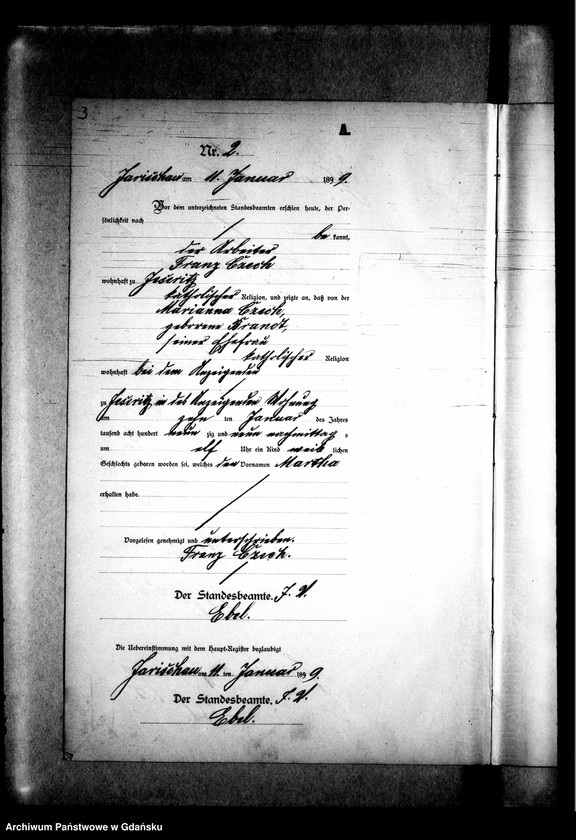 3
A.
Nr. 2.
Jarischau am 11. Januar 1899.
Vor dem unterzeichneten Standesbeamten erschien heute, der Per-
sönlichkeit nach
be kannt,
der Arbeiter
Franz Czech
wohnhaft zu Jeseritz
katholischer Religion, und zeigte an, daß von der
Marianna Czech,
geborene Brandt,
seiner Ehefrau
katholischer Religion
wohnhaft bei dem Anzeigenden
zu Jeseritz in des Anzeigenden Wohnung
am zehn ten Januar des Jahres
tausend acht hundert neun zig und neun nachmittag s
um elf Uhr ein Kind weib lichen
Geschlechts geboren worden sei, welches den Vornamen Martha
erhalten habe.
Vorgelesen genehmigt und unterschrieben.
Franz Czech.
Der Standesbeamte. J. V.
Ebel.
Die Uebereinstimmung mit dem Haupt-Register beglaubigt
Jarischau am 11. ten Januar 1899.
Der Standesbeamte. J. V.
Ebel.
Archiwum Państwowe w Gdańsku